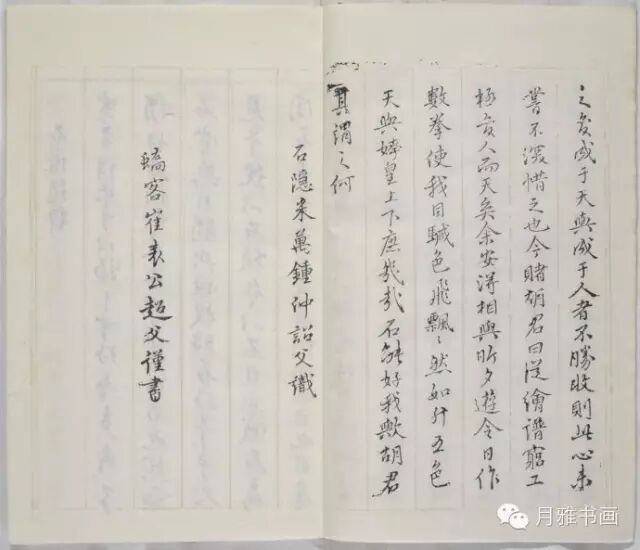 之矣成于天與成于人者不勝收則此心未
嘗不深惜之也今睹胡君曰從繪譜窮工
極変人而天矣余安得相與昕夕遊令日作
數拳使我目駴色飛飄〻然如升五色
天與媧皇上下庶幾哉石能好我歟胡君
其謂之何
石隱米萬鍾仲詔父識
驕客崔表公超父謹書
月雅书画